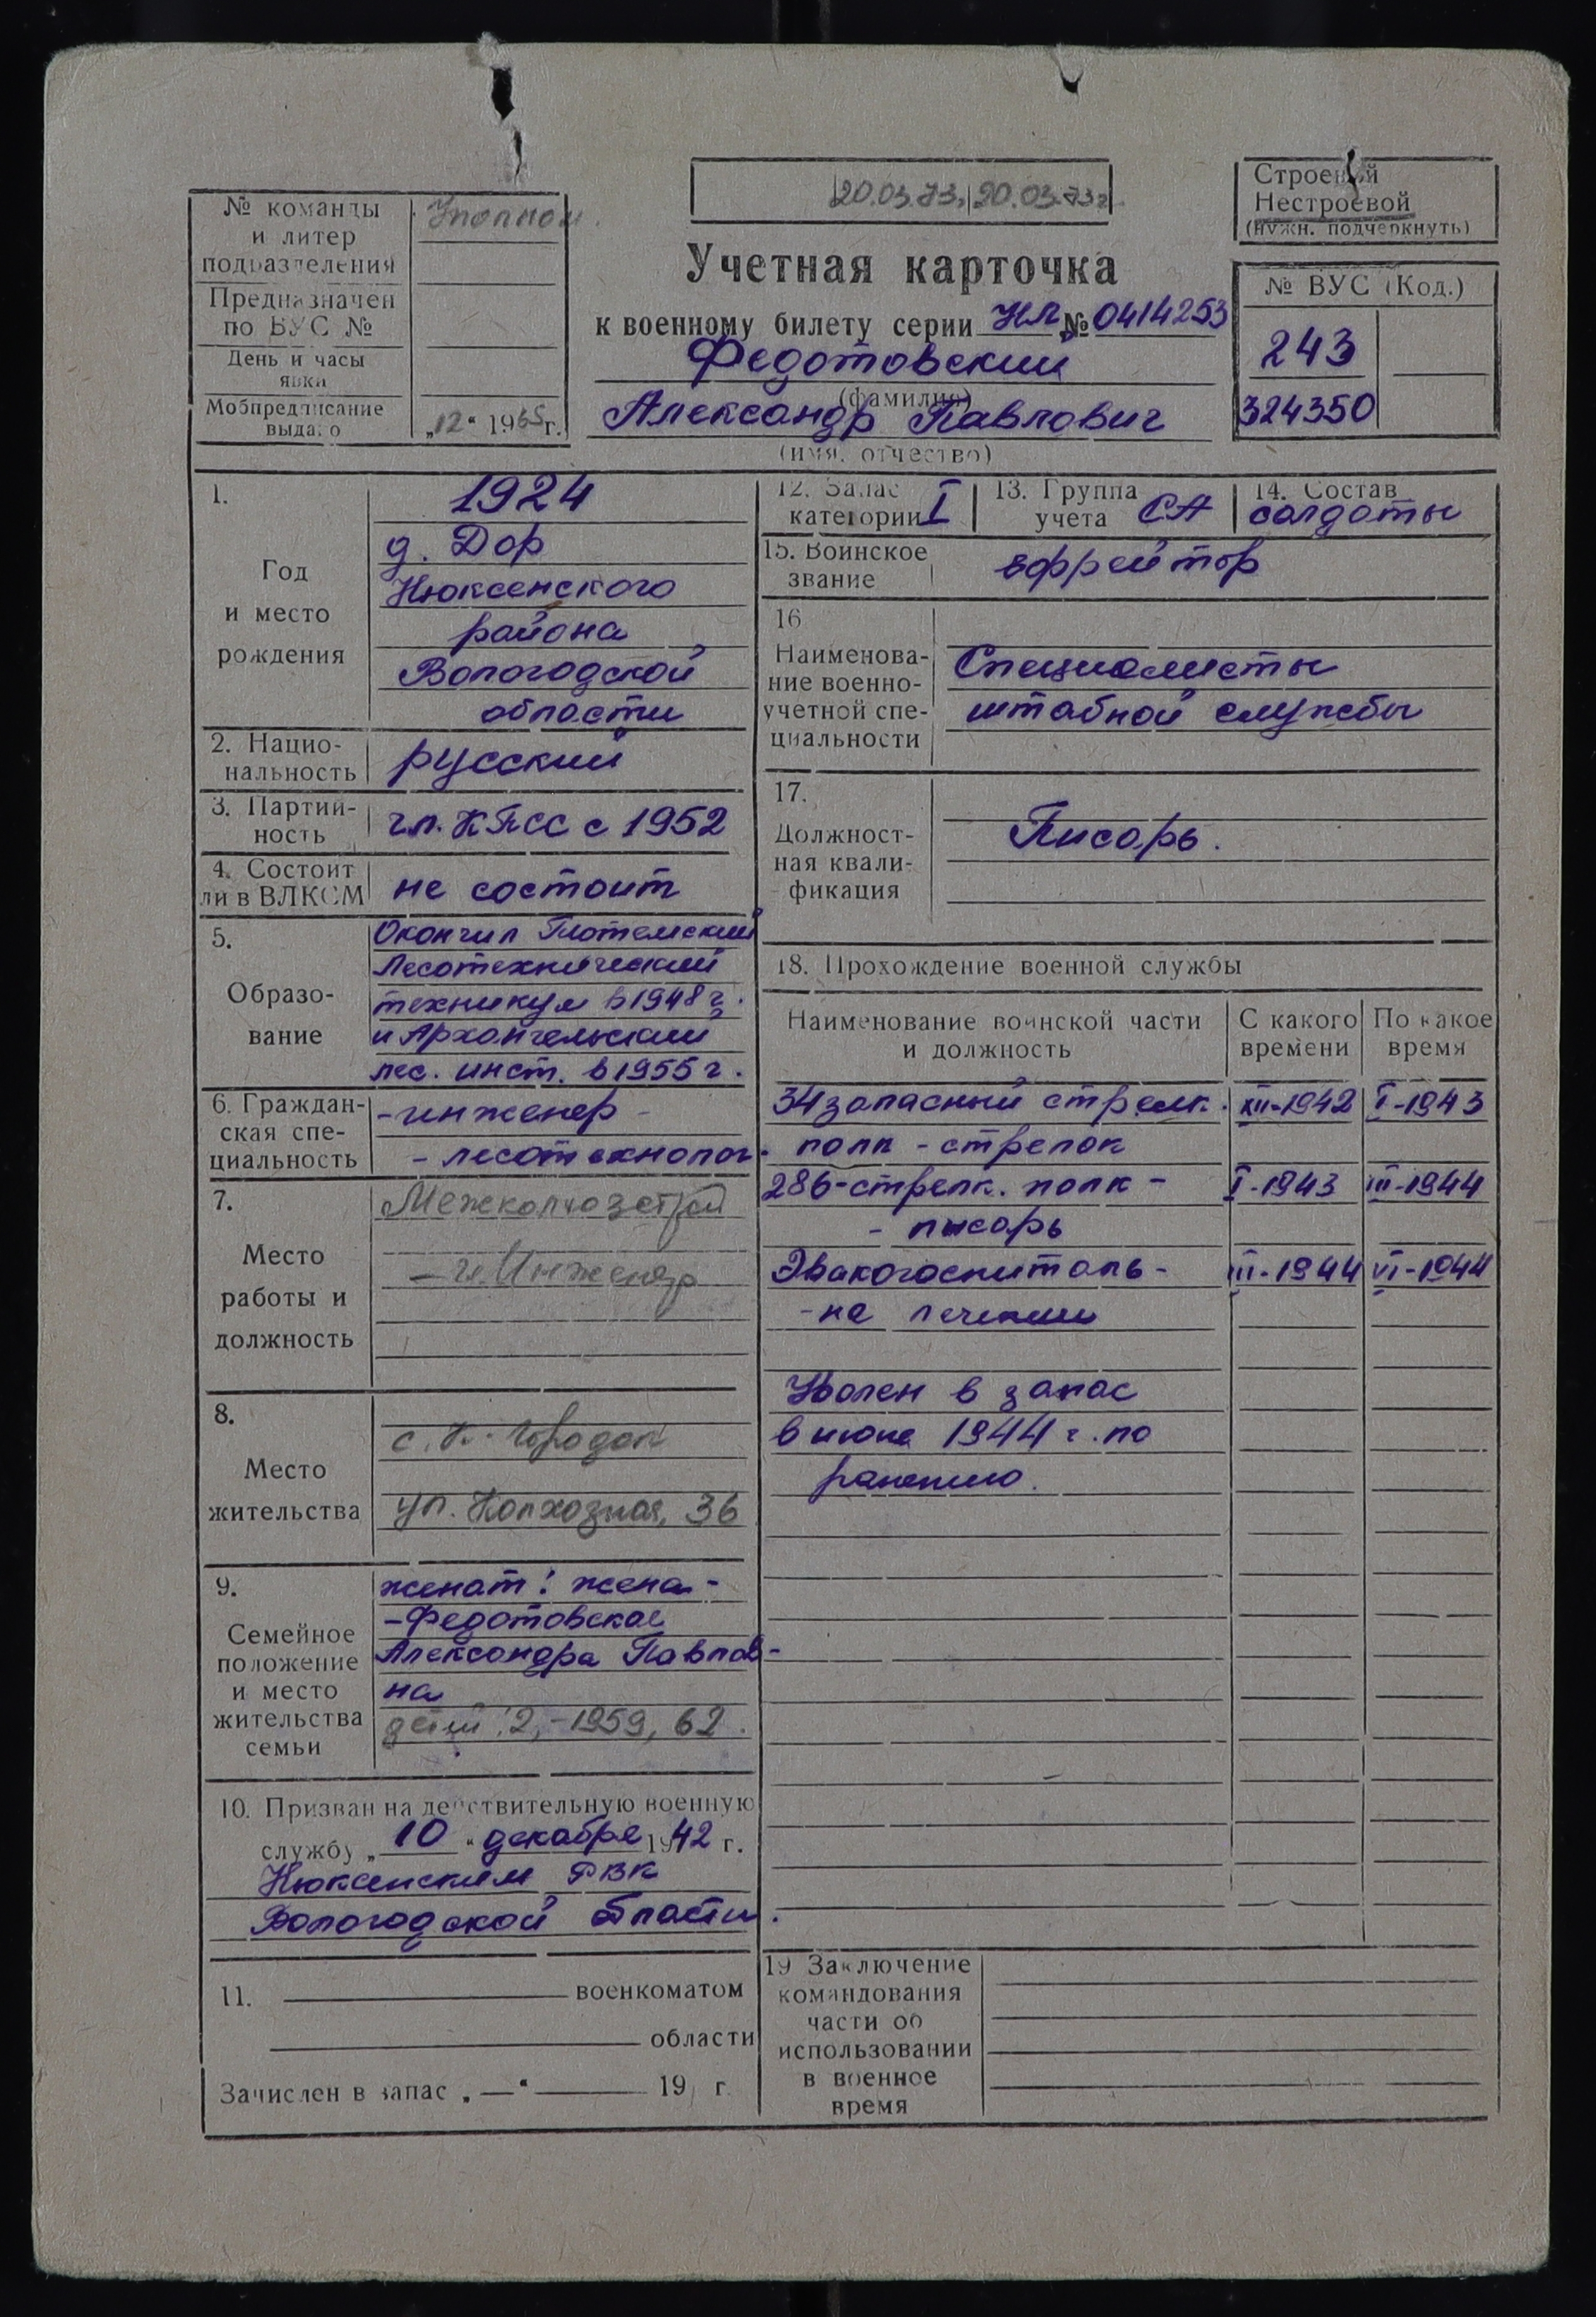 20.03.73. 20.03.73г
Строевой
Нестроевой
(нужн. подчеркнуть)
№ команды
и литер
подразделения
Предназначен
по ВУС №
День и часы
явки
Мобпредписание
выдано
„12“ 1965г.
Учетная карточка
к военному билету серии НЛ № 0414253
Федотовский
(фамилия)
Александр Павлович
(имя, отчество)
№ ВУС (Код.)
243
324350
1.
Год
и место
рождения
1924
д. Дор
Нюксенского
района
Вологодской
области
2. Нацио-
нальность
русский
3. Партий-
ность
чл. КПСС с 1952
4. Состоит
ли в ВЛКСМ
не состоит
5.
Образо-
вание
Окончил Тотемский
Лесотехнический
техникум в 1948 г.
и Архангельский
лес. инст. в 1955 г.
6. Граждан-
ская спе-
циальность
- инженер -
- лесотехнолог.
7.
Место
работы и
должность
Межколхозстрой
- гл. Инженер
8.
Место
жительства
с. К. Городок
ул. Колхозная, 36
9.
Семейное
положение
и место
жительства
семьи
женат: жена -
- Федотовская
Александра Павлов-
на
дети: 2, - 1959, 62.
10. Призван на действительную военную
службу „10“ декабря 1942 г.
Нюксенским РВК
Вологодской области.
11. военкоматом
области
Зачислен в запас „—“ 19 г.
12. Запас
категории I
13. Группа
учета СА
14. Состав
солдаты
15. Воинское
звание
ефрейтор
16
Наименова-
ние военно-
учетной спе-
циальности
Специалисты
штабной службы
17.
Должност-
ная квали-
фикация
Писарь.
18. Прохождение военной службы
Наименование воинской части
и должность
С какого
времени
По какое
время
34 запасный стрелк. XII-1942 I-1943
полк - стрелок
286-стрелк. полк - I-1943 III-1944
- писарь
Эвакогоспиталь - III-1944 VI-1944
- на лечении
Уволен в запас
в июне 1944 г. по
ранению.
19 Заключение
командования
части об
использовании
в военное
время